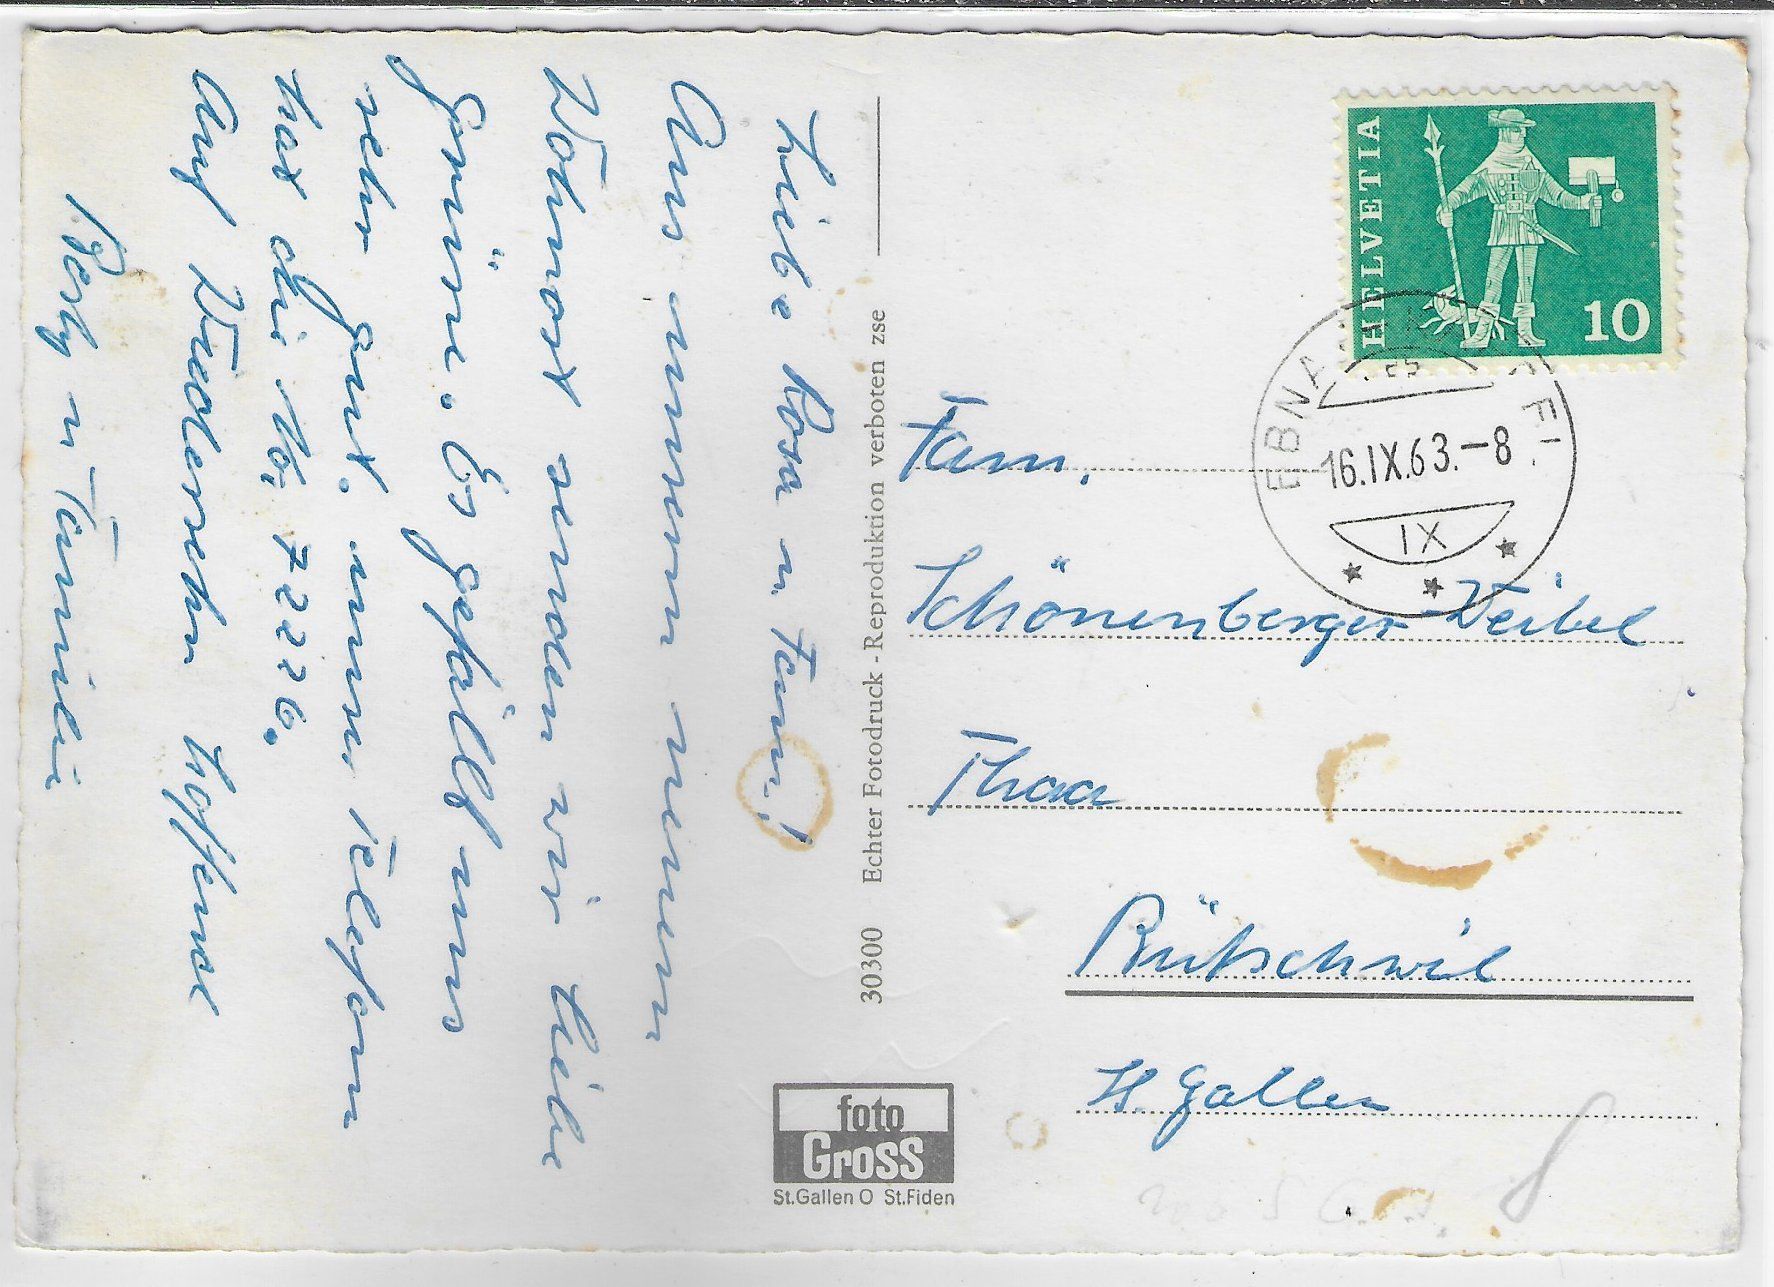 Liebe Rosa u. Fam.!
Aus unserem neuen
Wohnort senden wir liebe
Grüsse. Es gefällt uns
sehr gut. unser Telefon
hat die No. 72226.
Auf Wiedersehn hoffend
u Familie
30300 Echter Fotodruck - Reproduktion verboten zse
foto
Gross
St.Gallen O St.Fiden
HELVETIA
10
EBNA
16.IX.63.-8
IX
Fam.
Schönenberger-Weibel
Thaa
Bütschwil
St. Gallen